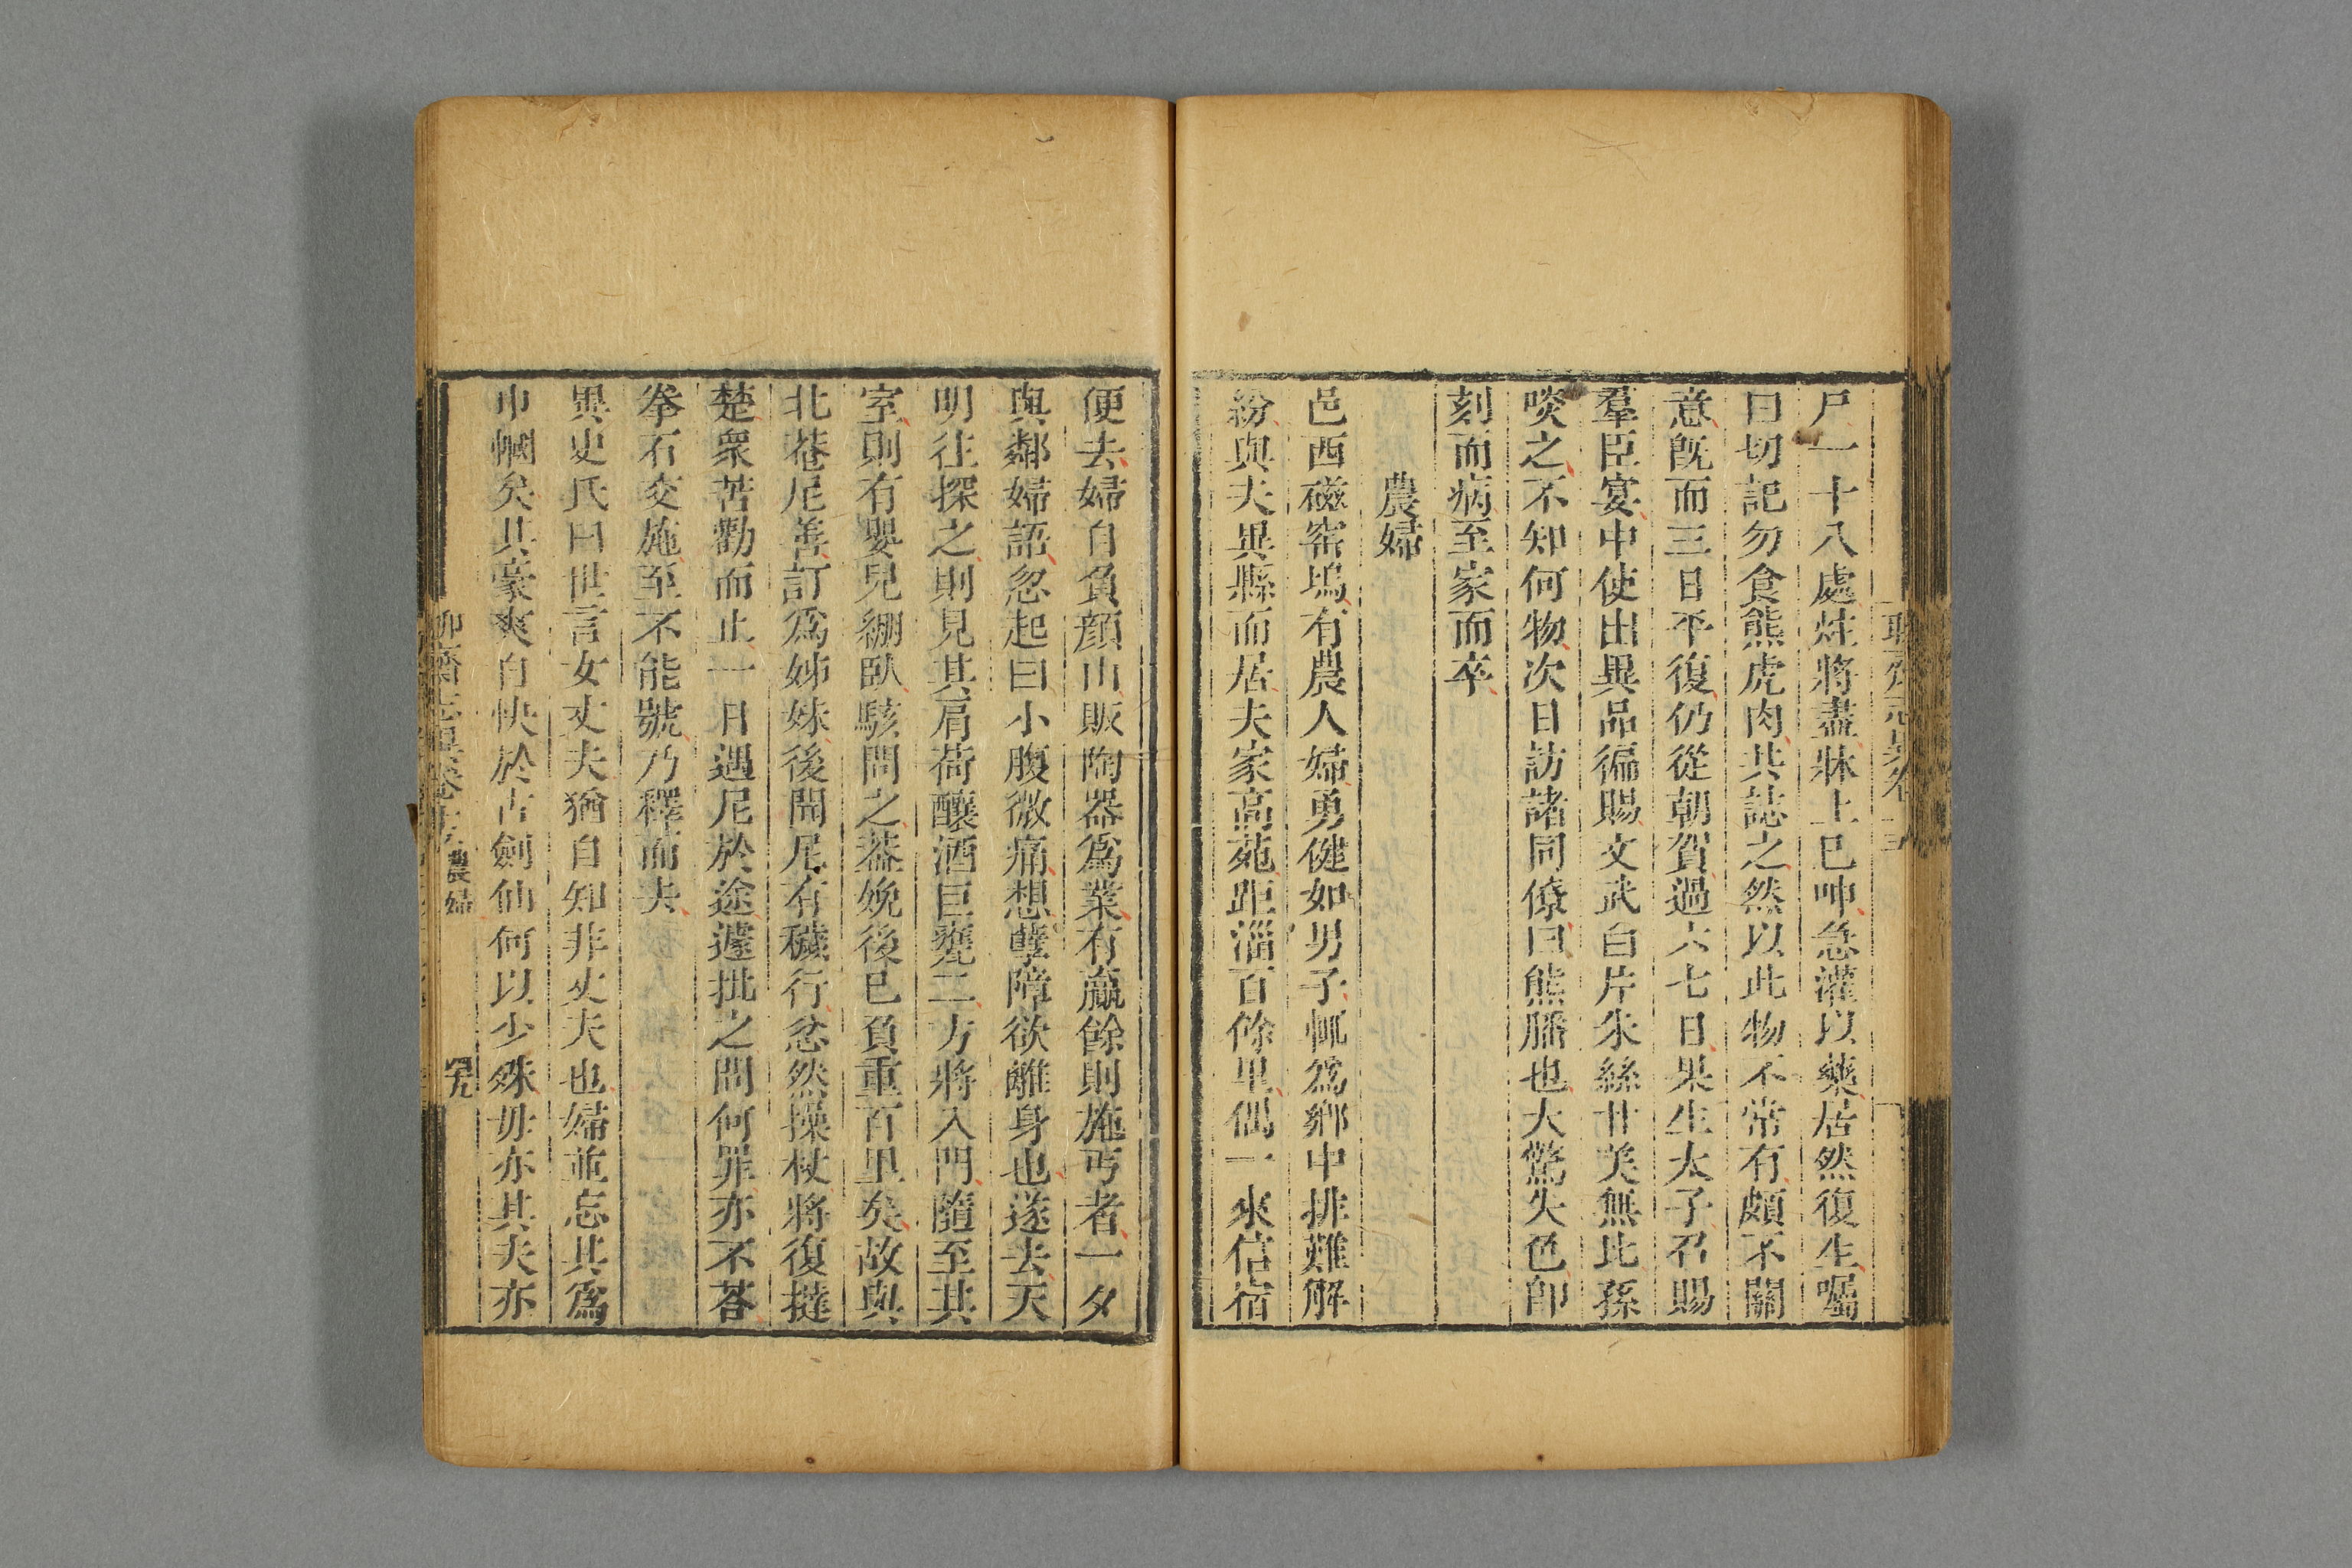 尸一十八處炷將盡牀上已呻急灌以藥居然復生囑
曰切記勿食熊虎肉共誌之然以此物不常有頗不關
意既而三日平復仍從朝賀過六七日果生太子召賜
羣臣宴中使出異品徧賜文武白片朱絲甘美無比孫
啖之不知何物次日訪諸同僚曰熊膰也大驚失色卽
刻而病至家而卒
農婦
邑西磁窑塢有農人婦勇健如男子輒爲鄉中排難解
紛與夫異縣而居夫家高苑距淄百餘里偶一來信宿
便去婦自負顏山販陶器爲業有贏餘則施丐者一夕
與鄰婦語忽起曰小腹微痛想孽障欲離身也遂去天
明往探之則見其肩荷釀酒巨甕二方將入門隨至其
室則有嬰兒繃臥駭問之葢娩後已負重百里矣故與
北菴尼善訂爲姊妹後聞尼有穢行忿然操杖將復撻
楚衆苦勸而止一日遇尼於途遽批之問何罪亦不荅
拳石交施至不能號乃釋而去
異史氏曰世言女丈夫猶自知非丈夫也婦並忘其爲
巾幗矣其豪爽自快於古劍仙何以少殊毋亦其夫亦
農婦